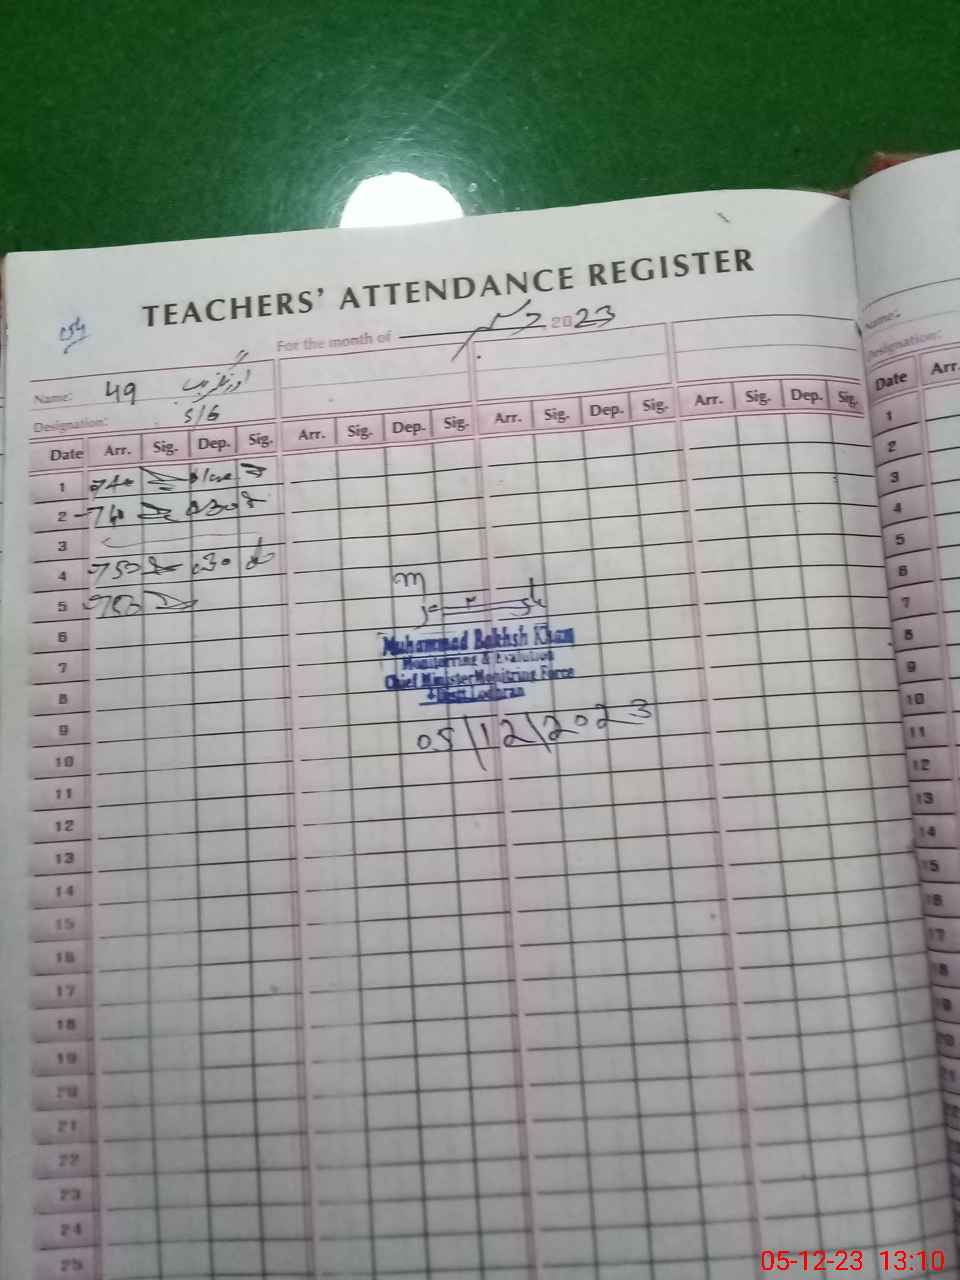 TEACHERS' ATTENDANCE REGISTER
For the month of 2023
Name: 49 اورنگزیب
Designation: S/G
Date Arr. Sig. Dep. Sig. Arr. Sig. Dep. Sig. Arr. Sig. Dep. Sig. Arr. Sig. Dep. Sig.
1 740
2 740
3
4 750
5 750
6
7
8
9
10
11
12
13
14
15
16
17
18
19
20
21
22
23
24
25
Muhammad Bakhsh Khan
Monitorring & Evalution
Chief Minister Monitring Force
Distt. Lodhran
05/12/2023
Name:
Designation:
Date Arr.
1
2
3
4
5
6
7
8
9
10
11
12
13
14
15
16
17
18
19
20
21
05-12-23 13:10